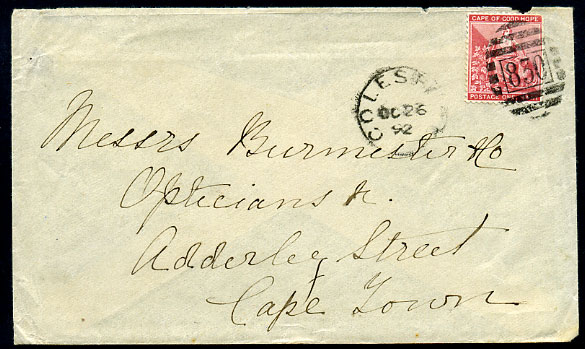 CAPE OF GOOD HOPE
POSTAGE ONE
830
COLESB
OC 26
92
Messrs Burmester & Co
Opticians &c.
Adderley Street
Cape Town